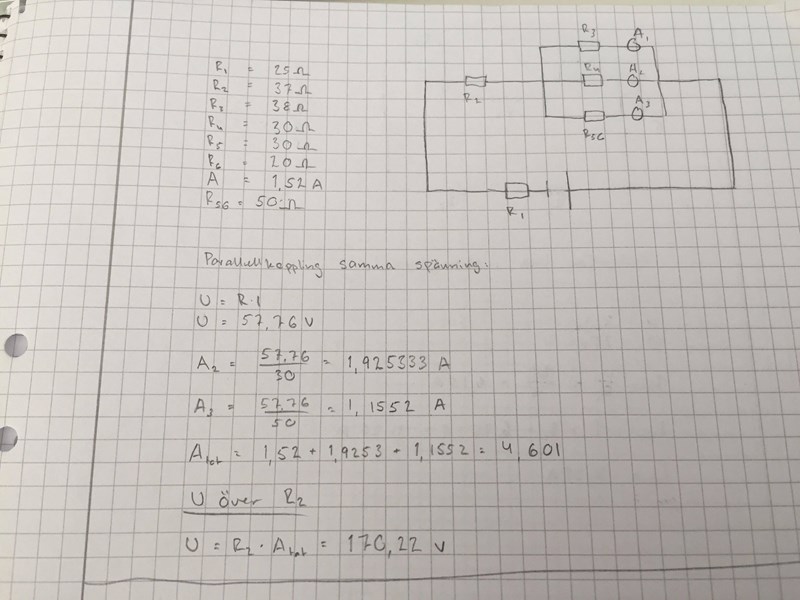 R₁ = 25Ω
R₂ = 37Ω
R₃ = 38Ω
R₄ = 30Ω
R₅ = 30Ω
R₆ = 20Ω
A = 1,52 A
R₅₆ = 50Ω
R₃ A₁
R₄ A₂
R₂
A₃
R₅₆
R₁
Parallellkoppling samma spänning:
U = R·I
U = 57,76 V
A₂ = 57,76 / 30 = 1,925333 A
A₃ = 57,76 / 50 = 1,1552 A
Atot = 1,52 + 1,9253 + 1,1552 = 4,601
U över R₂
U = R₂ · Atot = 170,22 V